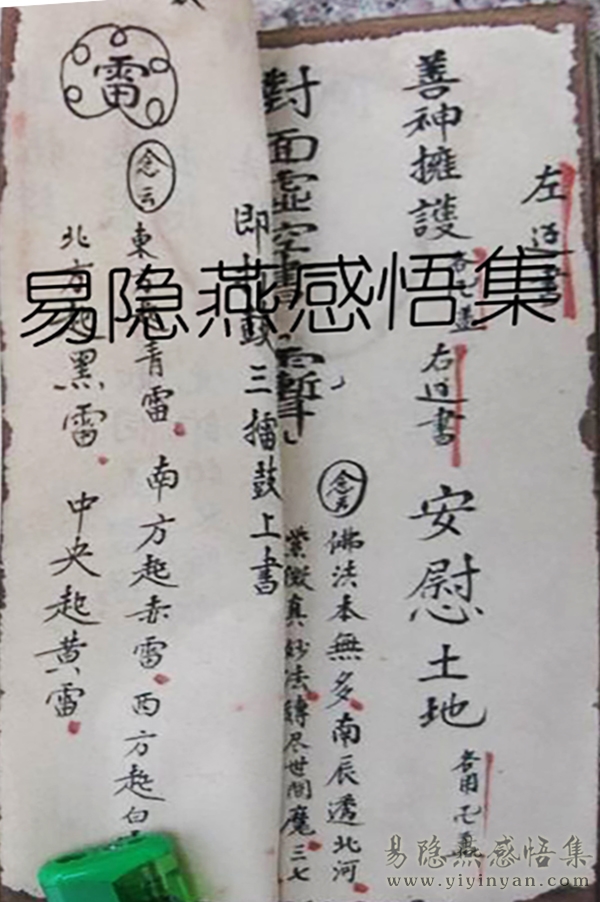 左边書
善神擁護 右边書
安慰土地 各用
對面虛空書
念云
佛法本無多南辰透北河
紫微真妙法轉尽世間魔三七
即打鼓三擂鼓上書
雷
念云
東方起青雷 南方起赤雷 西方起白
北方起黑雷 中央起黄雷
易隐燕感悟集
易隐燕感悟集
www.yiyinyan.com